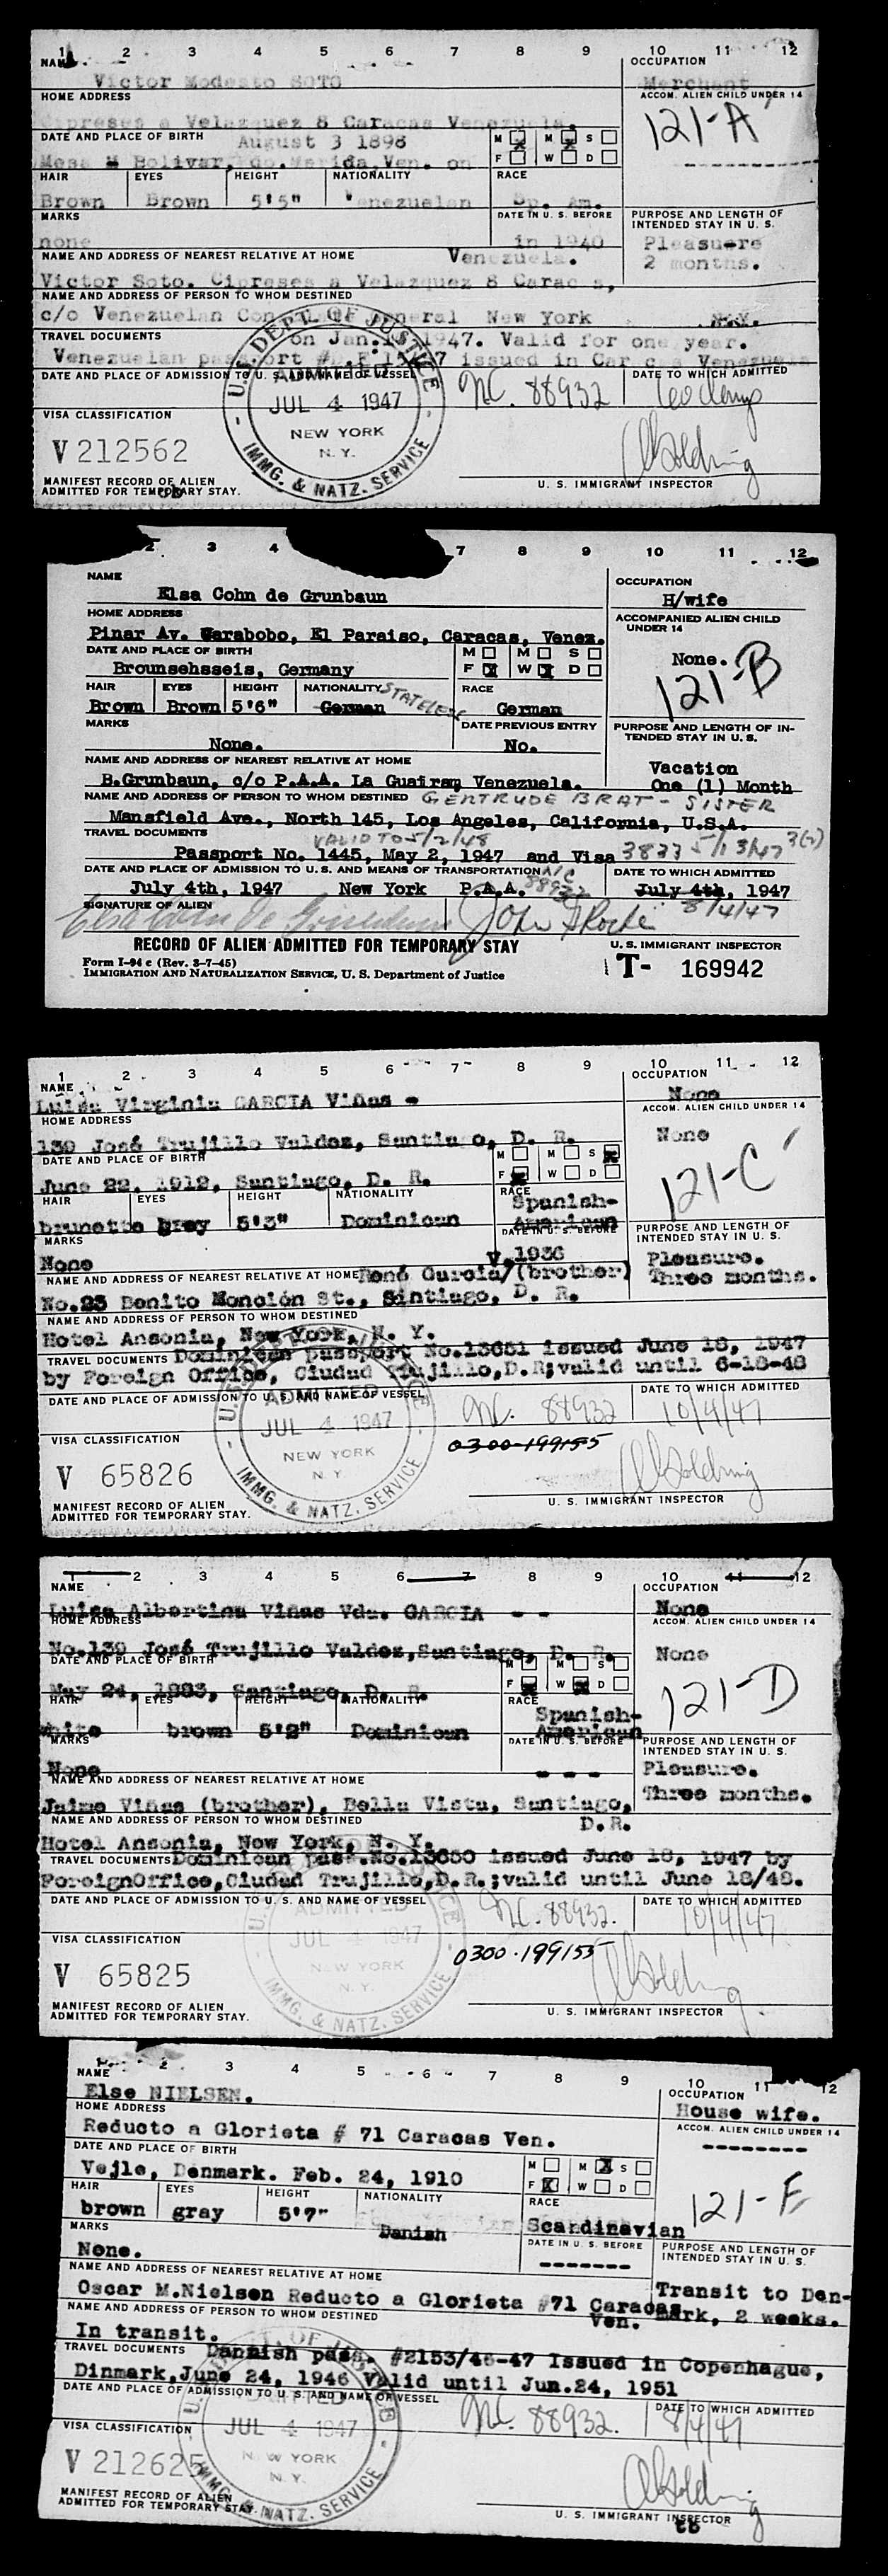 1 2 3 4 5 6 7 8 9 10 11 12
NAME OCCUPATION
Victor Modesto SOTO Merchant
HOME ADDRESS ACCOM. ALIEN CHILD UNDER 14
Cipreses a Velazquez 8 Caracas Venezuela. 121-A
DATE AND PLACE OF BIRTH August 3 1898 M M S
Mesa Bolivar, Edo. Merida, Ven. on F W D
HAIR EYES HEIGHT NATIONALITY RACE
Brown Brown 5'5" Venezuelan Sp. Am.
MARKS DATE IN U. S. BEFORE PURPOSE AND LENGTH OF INTENDED STAY IN U. S.
none in 1940 Pleasuere
NAME AND ADDRESS OF NEAREST RELATIVE AT HOME Venezuela. 2 months.
Victor Soto. Cipreses a Velazquez 8 Carac s,
NAME AND ADDRESS OF PERSON TO WHOM DESTINED
c/o Venezuelan General New York N.Y.
TRAVEL DOCUMENTS on Jan. 1947. Valid for one year.
Venezuelan passport issued in Caracas Venezuela
DATE AND PLACE OF ADMISSION TO U. S. AND NAME OF VESSEL DATE TO WHICH ADMITTED
NC. 88932
U.S. DEPT. OF JUSTICE
ADMITTED
JUL 4 1947
NEW YORK
N. Y.
IMMG. & NATZ. SERVICE
VISA CLASSIFICATION
V 212562
MANIFEST RECORD OF ALIEN
ADMITTED FOR TEMPORARY STAY. U. S. IMMIGRANT INSPECTOR
2 3 4 7 8 9 10 11 12
NAME OCCUPATION
Elsa Cohn de Grunbaun H/wife
HOME ADDRESS ACCOMPANIED ALIEN CHILD UNDER 14
Pinar Av. Carabobo, El Paraiso, Caracas, Venez.
DATE AND PLACE OF BIRTH M M S None.
Brounsehsseis, Germany F W D 121-B
HAIR EYES HEIGHT NATIONALITY STATELESS RACE
Brown Brown 5'6" German German
MARKS DATE PREVIOUS ENTRY PURPOSE AND LENGTH OF INTENDED STAY IN U. S.
None. No.
NAME AND ADDRESS OF NEAREST RELATIVE AT HOME Vacation
B.Grunbaun, c/o P.A.A. La Guairam Venezuela. One (1) Month
NAME AND ADDRESS OF PERSON TO WHOM DESTINED GERTRUDE BRAT - SISTER
Mansfield Ave., North 145, Los Angeles, California, U.S.A.
TRAVEL DOCUMENTS VALID TO 5/2/48
Passport No. 1445, May 2, 1947 and Visa 3833 5/13/47 3(2)
DATE AND PLACE OF ADMISSION TO U. S. AND MEANS OF TRANSPORTATION N/C 88932 DATE TO WHICH ADMITTED
July 4th, 1947 New York P.A.A. July 4th, 1947 8/4/47
SIGNATURE OF ALIEN
Elsa Cohn De Grunbaun John F Roche
RECORD OF ALIEN ADMITTED FOR TEMPORARY STAY U. S. IMMIGRANT INSPECTOR
Form I-94 c (Rev. 3-7-45)
IMMIGRATION AND NATURALIZATION SERVICE, U. S. Department of Justice T- 169942
1 2 3 4 5 6 7 8 9 10 11 12
NAME OCCUPATION
Luisa Virginia GARCIA Viñas - None
HOME ADDRESS ACCOM. ALIEN CHILD UNDER 14
139 José Trujillo Valdez, Santiago, D. R. None
DATE AND PLACE OF BIRTH M M S
June 22, 1912, Santiago, D. R. F W D 121-C
HAIR EYES HEIGHT NATIONALITY RACE
brunette grey 5'3" Dominican Spanish-American
MARKS DATE IN U. S. BEFORE PURPOSE AND LENGTH OF INTENDED STAY IN U. S.
None 1936 Pleasure.
NAME AND ADDRESS OF NEAREST RELATIVE AT HOME René Garcia/(brother) Three months.
No.23 Benito Monción St., Santiago, D. R.
NAME AND ADDRESS OF PERSON TO WHOM DESTINED
Hotel Ansonia, New York, N. Y.
TRAVEL DOCUMENTS Dominican passport No.13651 issued June 18, 1947
by Foreign Office, Ciudad Trujillo,D.R;valid until 6-18-48
DATE AND PLACE OF ADMISSION TO U. S. AND NAME OF VESSEL DATE TO WHICH ADMITTED
NC. 88932 10/4/47
ADMITTED
JUL 4 1947
NEW YORK
N. Y.
IMMG. & NATZ. SERVICE
VISA CLASSIFICATION 0300-199155
V 65826
MANIFEST RECORD OF ALIEN
ADMITTED FOR TEMPORARY STAY. U. S. IMMIGRANT INSPECTOR
1 2 3 4 5 6 7 8 9 10 11 12
NAME OCCUPATION
Luisa Albertina Viñas Vda. GARCIA - - None
HOME ADDRESS ACCOM. ALIEN CHILD UNDER 14
No.139 José Trujillo Valdez,Santiago, D. R. None
DATE AND PLACE OF BIRTH M M S
May 24, 1883, Santiago, D. R. F W D 121-D
HAIR EYES HEIGHT NATIONALITY RACE
white brown 5'2" Dominican Spanish-American
MARKS DATE IN U. S. BEFORE PURPOSE AND LENGTH OF INTENDED STAY IN U. S.
None - - - Pleasure.
NAME AND ADDRESS OF NEAREST RELATIVE AT HOME Three months.
Jaime Viñas (brother), Bella Vista, Santiago, D.R.
NAME AND ADDRESS OF PERSON TO WHOM DESTINED
Hotel Ansonia, New York, N. Y.
TRAVEL DOCUMENTS Dominican pass.No.13650 issued June 18, 1947 by
ForeignOffice,Ciudad Trujillo,D.R.;valid until June 18/48.
DATE AND PLACE OF ADMISSION TO U. S. AND NAME OF VESSEL DATE TO WHICH ADMITTED
NC. 88932. 10/4/47
ADMITTED
JUL 4 1947
NEW YORK
N. Y.
IMMG. & NATZ. SERVICE
VISA CLASSIFICATION 0300-199155
V 65825
MANIFEST RECORD OF ALIEN
ADMITTED FOR TEMPORARY STAY. U. S. IMMIGRANT INSPECTOR
2 3 4 5 6 7 8 9 10 11 12
NAME OCCUPATION
Else NIELSEN. House wife.
HOME ADDRESS ACCOM. ALIEN CHILD UNDER 14
Reducto a Glorieta # 71 Caracas Ven. --------
DATE AND PLACE OF BIRTH M M S
Vejle, Denmark. Feb. 24, 1910 F W D 121-E
HAIR EYES HEIGHT NATIONALITY RACE
brown gray 5'7" Danish Scandinavian
MARKS DATE IN U. S. BEFORE PURPOSE AND LENGTH OF INTENDED STAY IN U. S.
None. -------
NAME AND ADDRESS OF NEAREST RELATIVE AT HOME Transit to Den-
Oscar M.Nielsen Reducto a Glorieta #71 Caracas Ven. mark, 2 weeks.
NAME AND ADDRESS OF PERSON TO WHOM DESTINED
In transit.
TRAVEL DOCUMENTS Dannish pass. #2153/46-47 Issued in Copenhague,
Dinmark,June 24, 1946 Valid until Jun.24, 1951
DATE AND PLACE OF ADMISSION TO U. S. AND NAME OF VESSEL DATE TO WHICH ADMITTED
NC. 88932. 8/4/47
JUL 4 1947
NEW YORK
N. Y.
IMMG. & NATZ. SERVICE
VISA CLASSIFICATION
V 212625
MANIFEST RECORD OF ALIEN
ADMITTED FOR TEMPORARY STAY. U. S. IMMIGRANT INSPECTOR